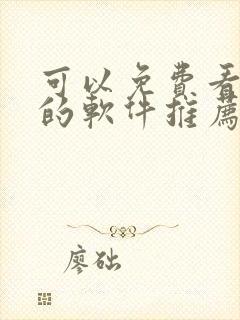 可以免费看
的软件推荐
廖础